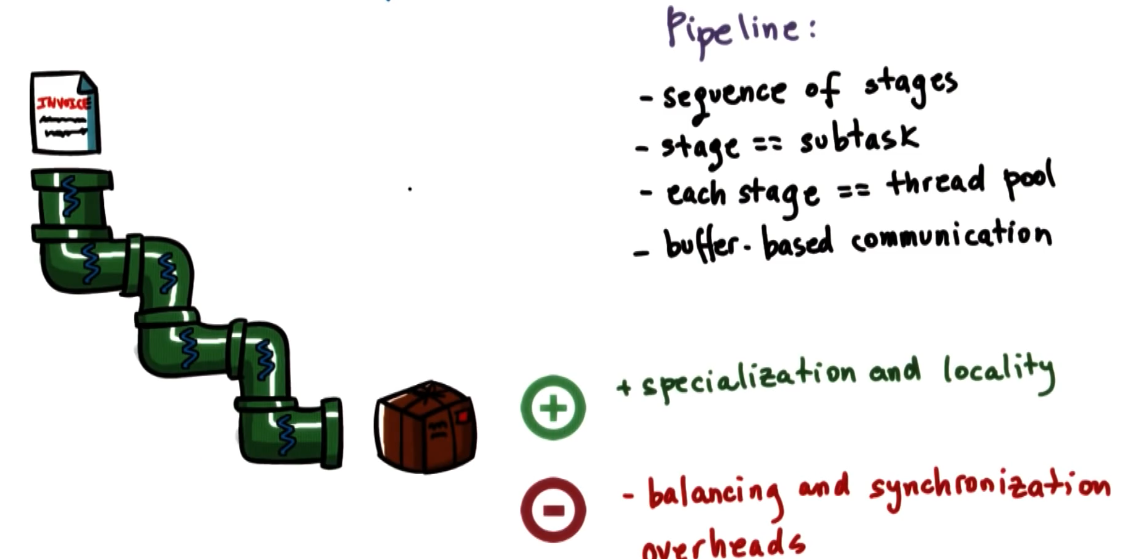 INVOICE
Pipeline:
- sequence of stages
- stage == subtask
- each stage == thread pool
- buffer-based communication
+ specialization and locality
- balancing and synchronization
overheads